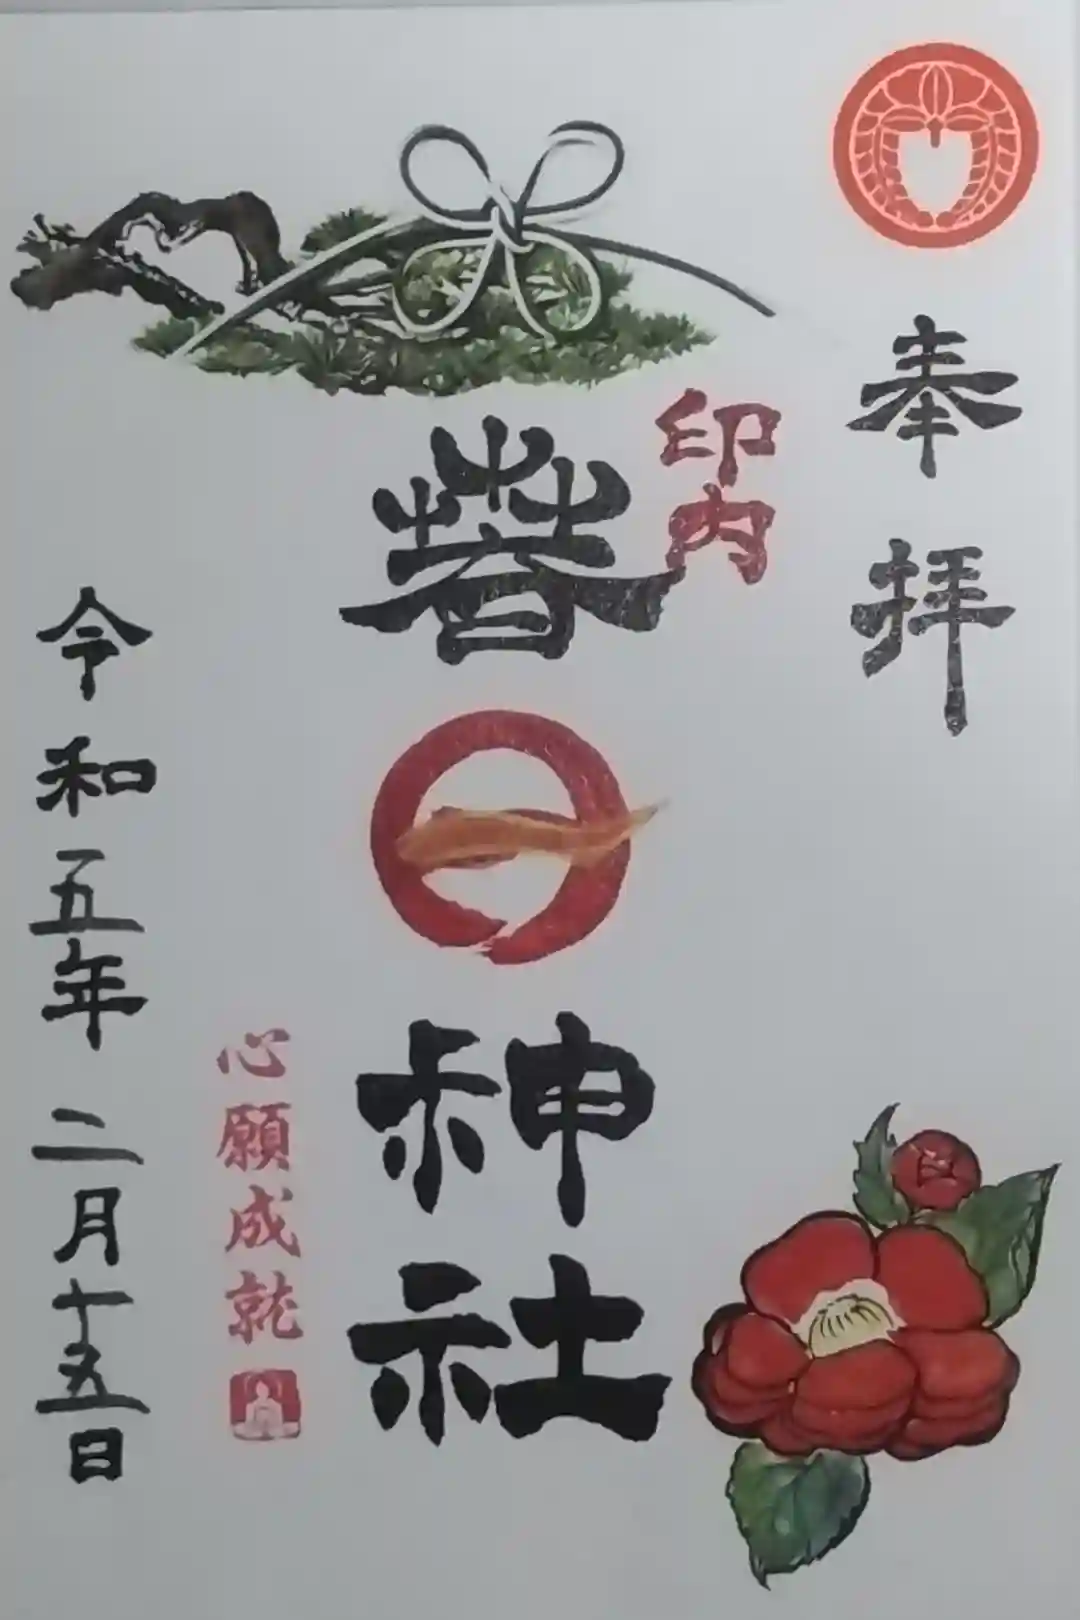 奉拝
印内
春日神社
心願成就
令和五年二月十五日